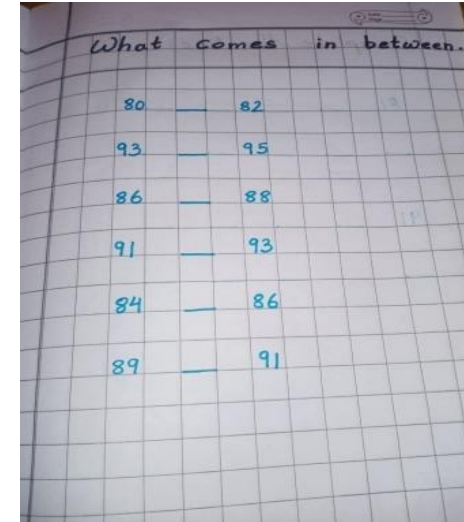 What comes in between.
80 __ 82
93 __ 95
86 __ 88
91 __ 93
84 __ 86
89 __ 91